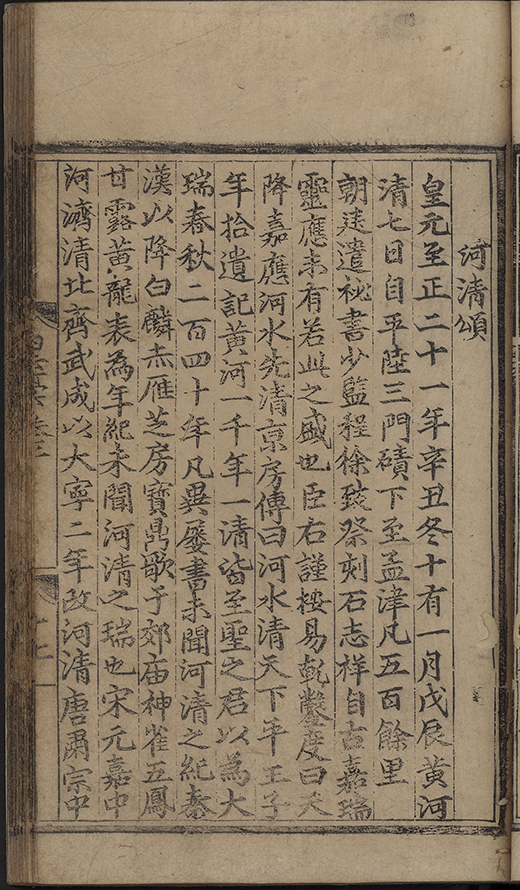 河清頌
皇元至正二十一年辛丑冬十有一月戊辰黃河
清七日自平陸三門磧下至孟津凡五百餘里
朝廷遣祕書少監程徐致祭刻石志祥自古嘉瑞
靈應未有若此之盛也臣右謹按易乾鑿度曰天
降嘉應河水先清京房傳曰河水清天下平王子
年拾遺記黃河一千年一清皆至聖之君以為大
瑞春秋二百四十年凡異屢書未聞河清之紀秦
漢以降白麟赤雁芝房寶鼎歌于郊庙神雀五鳳
甘露黃龍表為年紀未聞河清之瑞也宋元嘉中
河濟清北齊武成以大寧二年改河清唐肅宗中